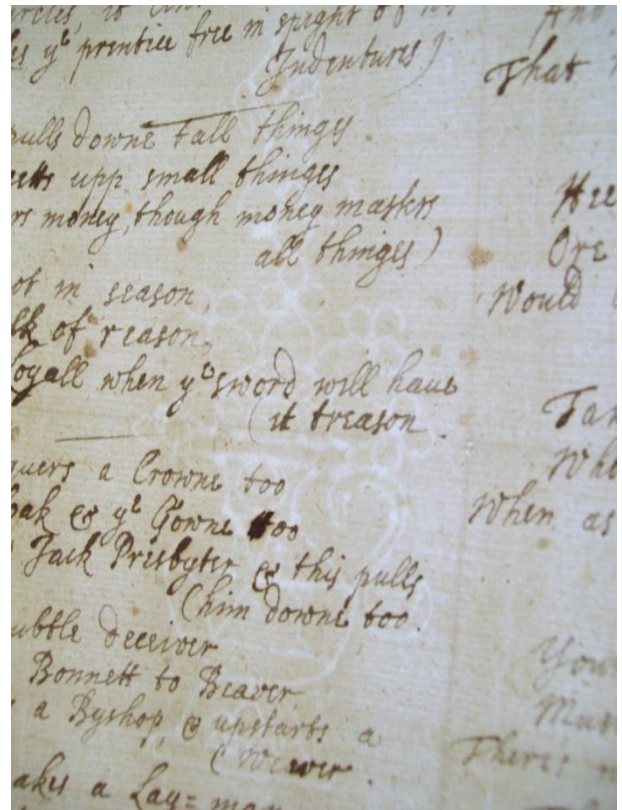 ye prentice free in spight of
Indentures)
pulls downe tall thinges
upp small thinges
money, though money masters
all thinges)
in season,
of reason,
oyall when ye sword will have
(it treason.
quers a Crowne too
oak & ye Gowne too
Jack Presbyter & this pulls
(him downe too.
ubtle deceiver
Bonnett to Beaver
a Byshop, & upstarts a
(Weaver.
akes a Lay=man
And
That
Ore
Would
When as
There's